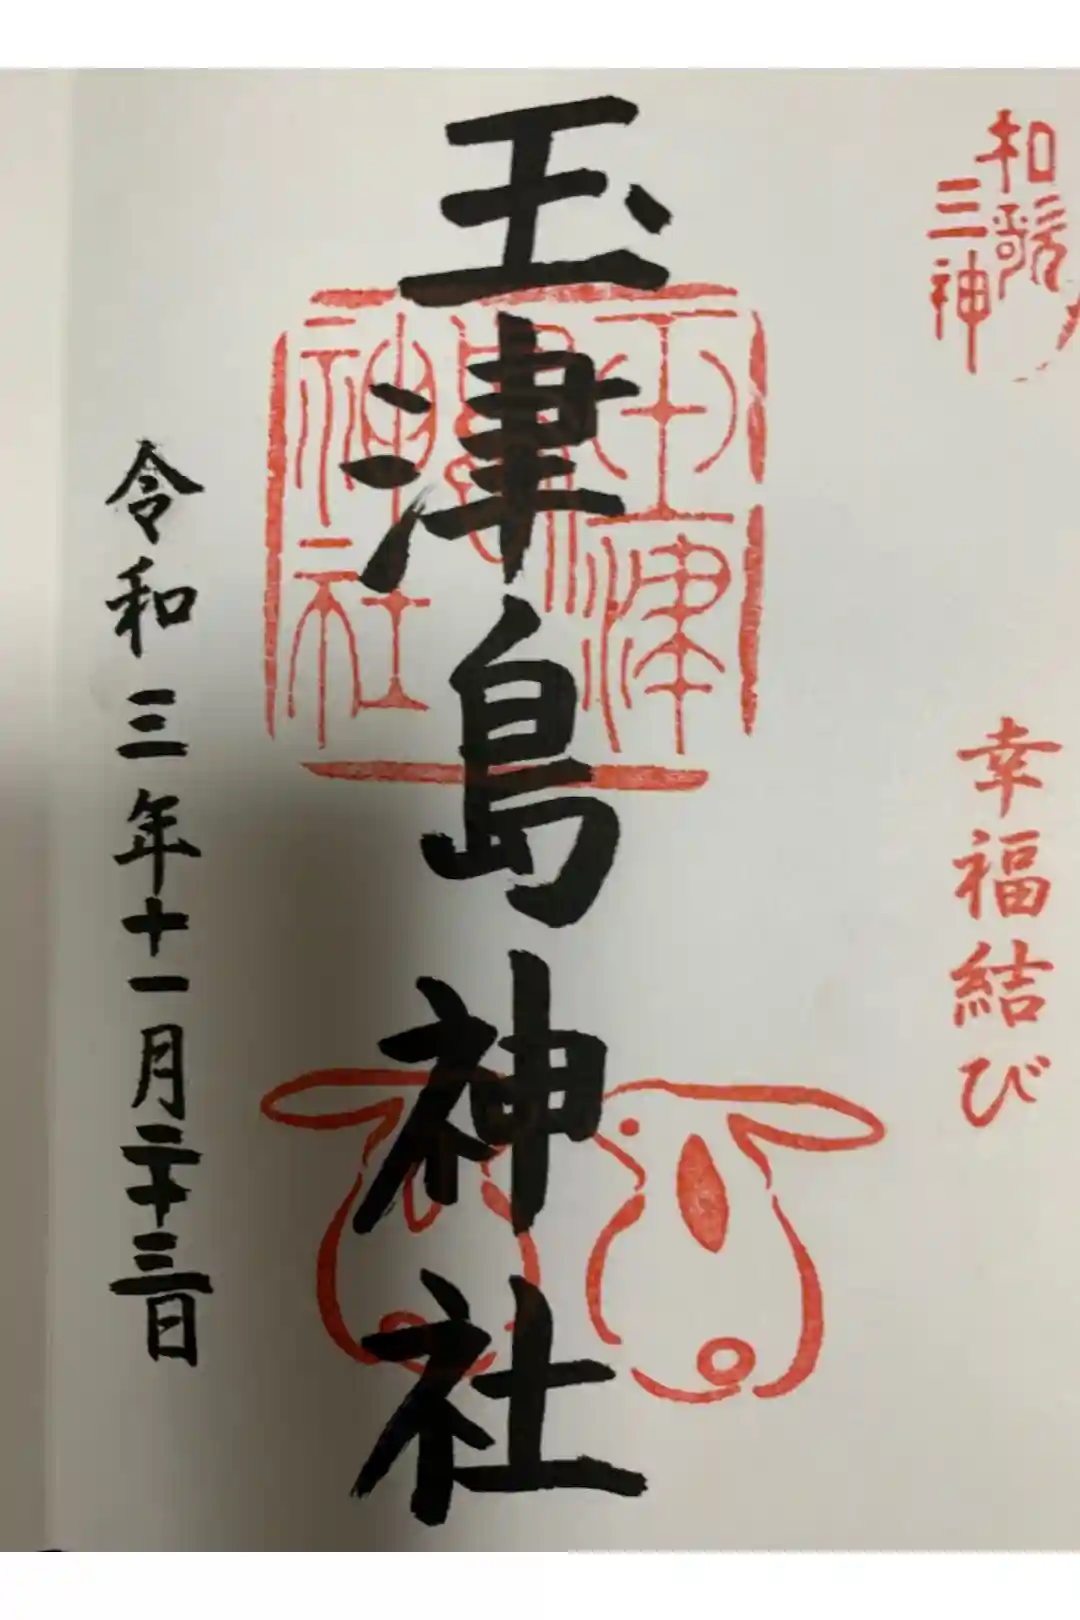 和歌
三神
幸福結び
玉津島神社
玉津
島
神社
令和三年十一月二十三日